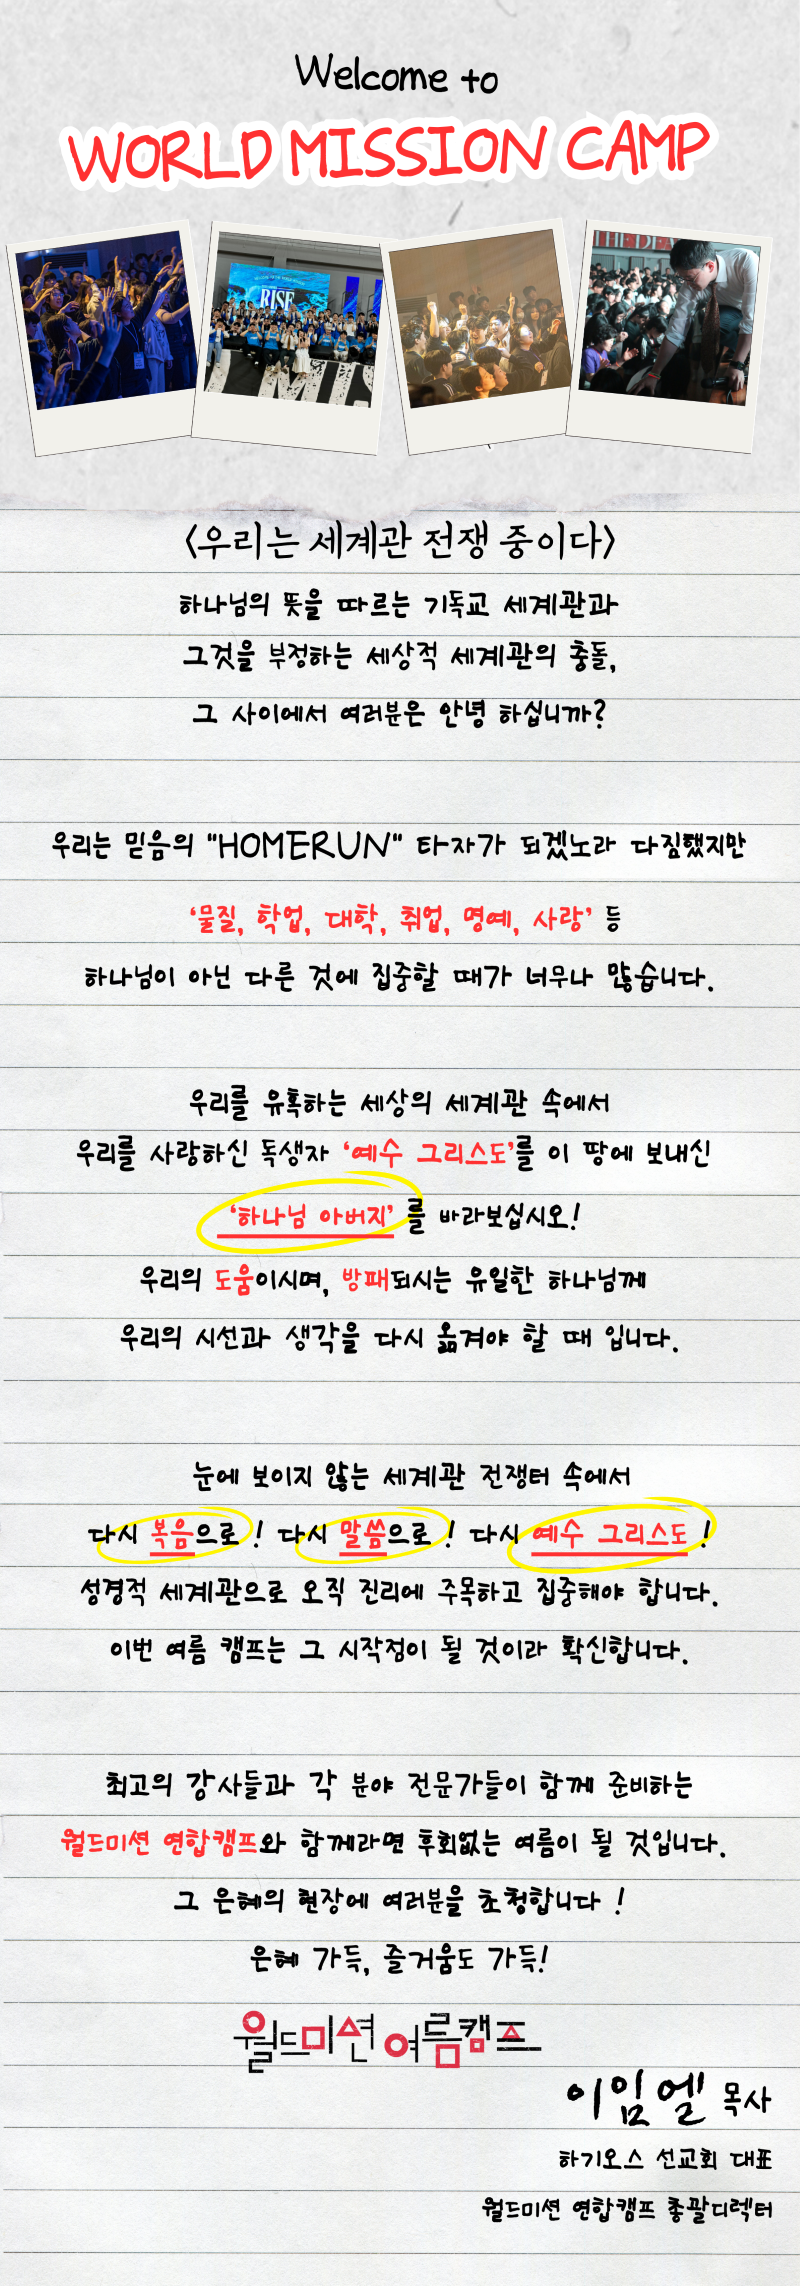 Welcome to
WORLD MISSION CAMP
RISE
THE BEA
<우리는 세계관 전쟁 중이다>
하나님의 뜻을 따르는 기독교 세계관과
그것을 부정하는 세상적 세계관의 충돌,
그 사이에서 여러분은 안녕 하십니까?
우리는 믿음의 "HOMERUN" 타자가 되겠노라 다짐했지만
'물질, 학업, 대학, 취업, 명예, 사랑' 등
하나님이 아닌 다른 것에 집중할 때가 너무나 많습니다.
우리를 유혹하는 세상의 세계관 속에서
우리를 사랑하신 독생자 '예수 그리스도'를 이 땅에 보내신
'하나님 아버지' 를 바라보십시오!
우리의 도움이시며, 방패되시는 유일한 하나님께
우리의 시선과 생각을 다시 옮겨야 할 때 입니다.
눈에 보이지 않는 세계관 전쟁터 속에서
다시 복음으로 ! 다시 말씀으로 ! 다시 예수 그리스도 !
성경적 세계관으로 오직 진리에 주목하고 집중해야 합니다.
이번 여름 캠프는 그 시작점이 될 것이라 확신합니다.
최고의 강사들과 각 분야 전문가들이 함께 준비하는
월드미션 연합캠프와 함께라면 후회없는 여름이 될 것입니다.
그 은혜의 현장에 여러분을 초청합니다 !
은혜 가득, 즐거움도 가득!
월드미션 여름캠프
이임엘 목사
하기오스 선교회 대표
월드미션 연합캠프 총괄디렉터